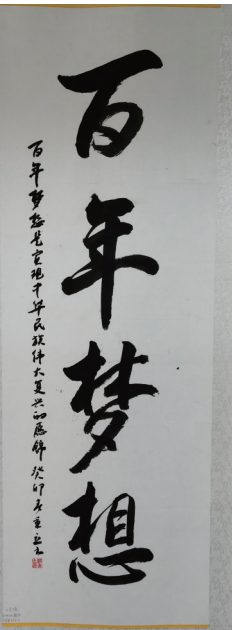 百年梦想
百年梦想是实现中华民族伟大复兴的
癸卯